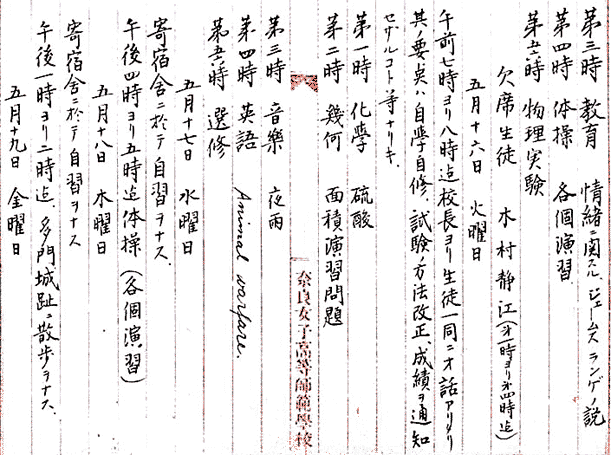 第三時 教育 情緒ニ関スル、ジェームス ランゲノ説
第四時 体操 各個演習
第五時 物理実験
欠席生徒 木村静江(第一時ヨリ第四時迄)
五月十六日 火曜日
午前七時ヨリ八時迄校長ヨリ生徒一同ニオ話アリタリ
其ノ要点ハ自学自修、試験ノ方法改正、成績ヲ通知
セザルコト等ナリキ。
第一時 化學 硫酸
第二時 幾何 面積演習問題
第三時 音樂 夜雨
第四時 英語 Animal warfare.
第五時 選修
五月十七日 水曜日
寄宿舎ニ於テ自習ヲナス、
午後四時ヨリ五時迄体操(各個演習)
五月十八日 木曜日
寄宿舎ニ於テ自習ヲナス
午後一時ヨリ二時迄、多門城趾ニ散歩ヲナス、
五月十九日 金曜日
奈良女子高等師範學校